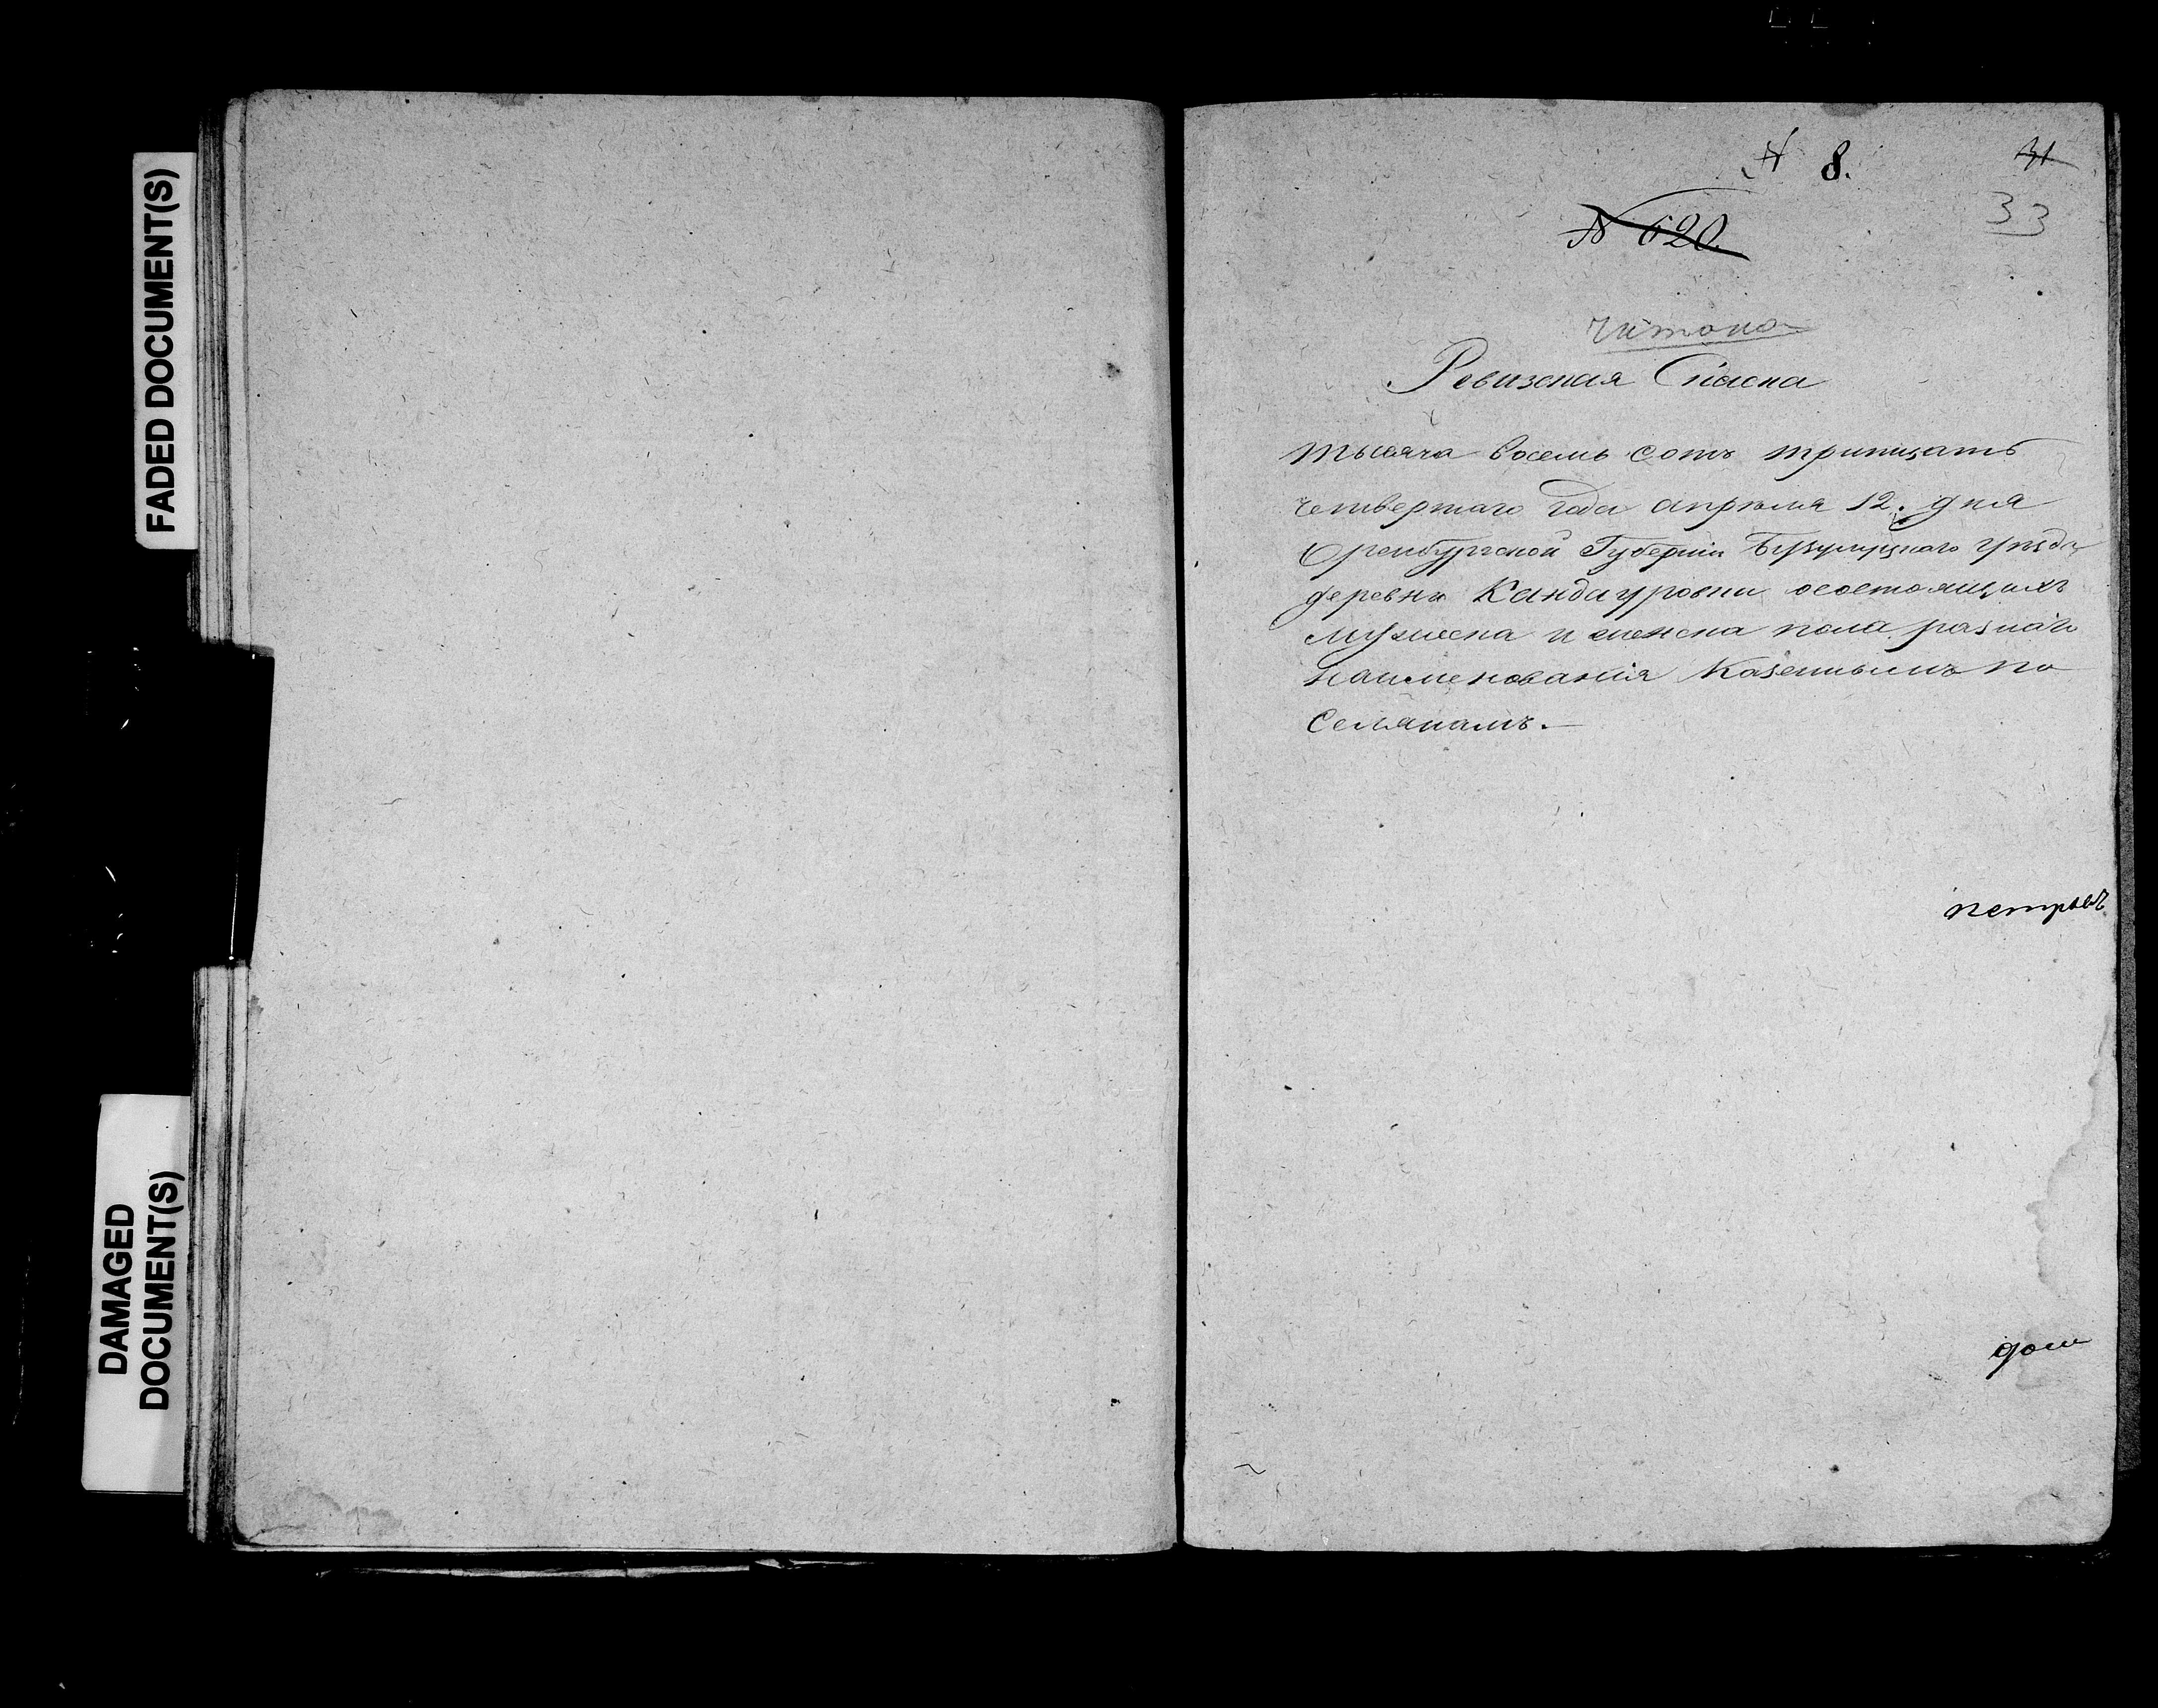 FADED DOCUMENT(S)
DAMAGED
DOCUMENT(S)
№ 8.
31
33
№ 620.
читано
Ревизская Сказка
тысяча восемь сотъ тритцать
четвертаго года апреля 12. дня
Оренбургской Губернии Бузулуцкаго уезда
деревни Кандауровки о состоящихъ
мужеска и женска пола разнаго
наименования казенныхъ по
селянамъ.—